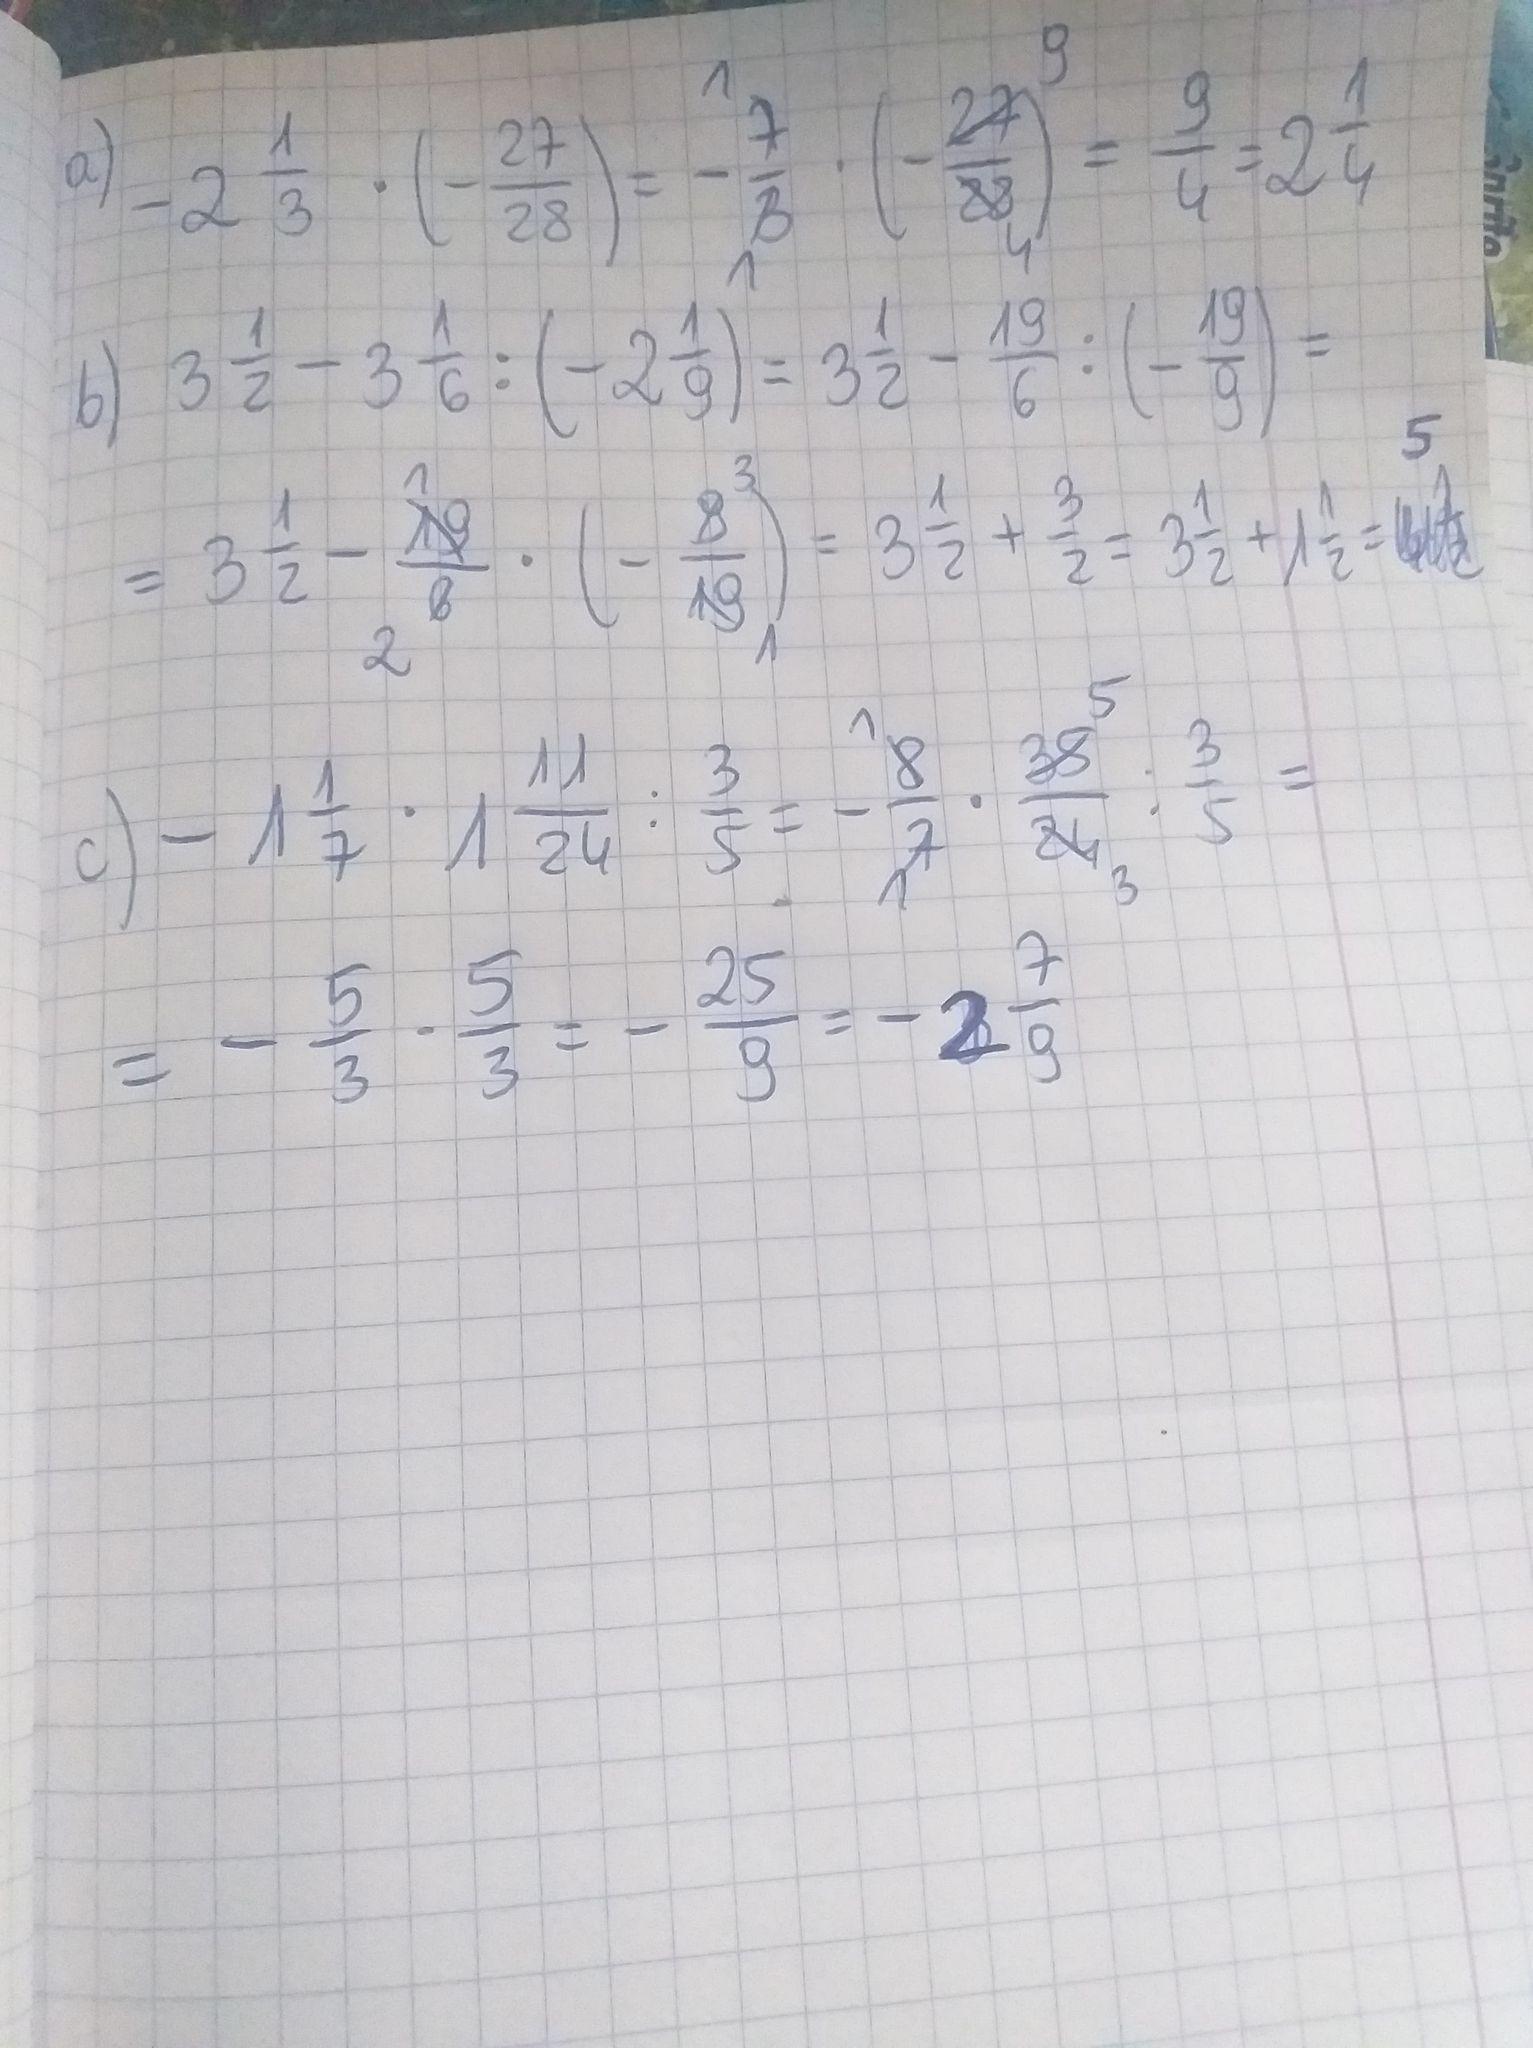 a) -2 1/3 · (-27/28) = -7/3 · (-27/28) = 9/4 = 2 1/4
b) 3 1/2 - 3 1/6 : (-2 1/9) = 3 1/2 - 19/6 : (-19/9) =
= 3 1/2 - 19/6 · (-9/19) = 3 1/2 + 3/2 = 3 1/2 + 1 1/2 = 5
c) -1 1/7 · 1 11/24 : 3/5 = -8/7 · 35/24 : 3/5 =
= -5/3 · 5/3 = -25/9 = -2 7/9